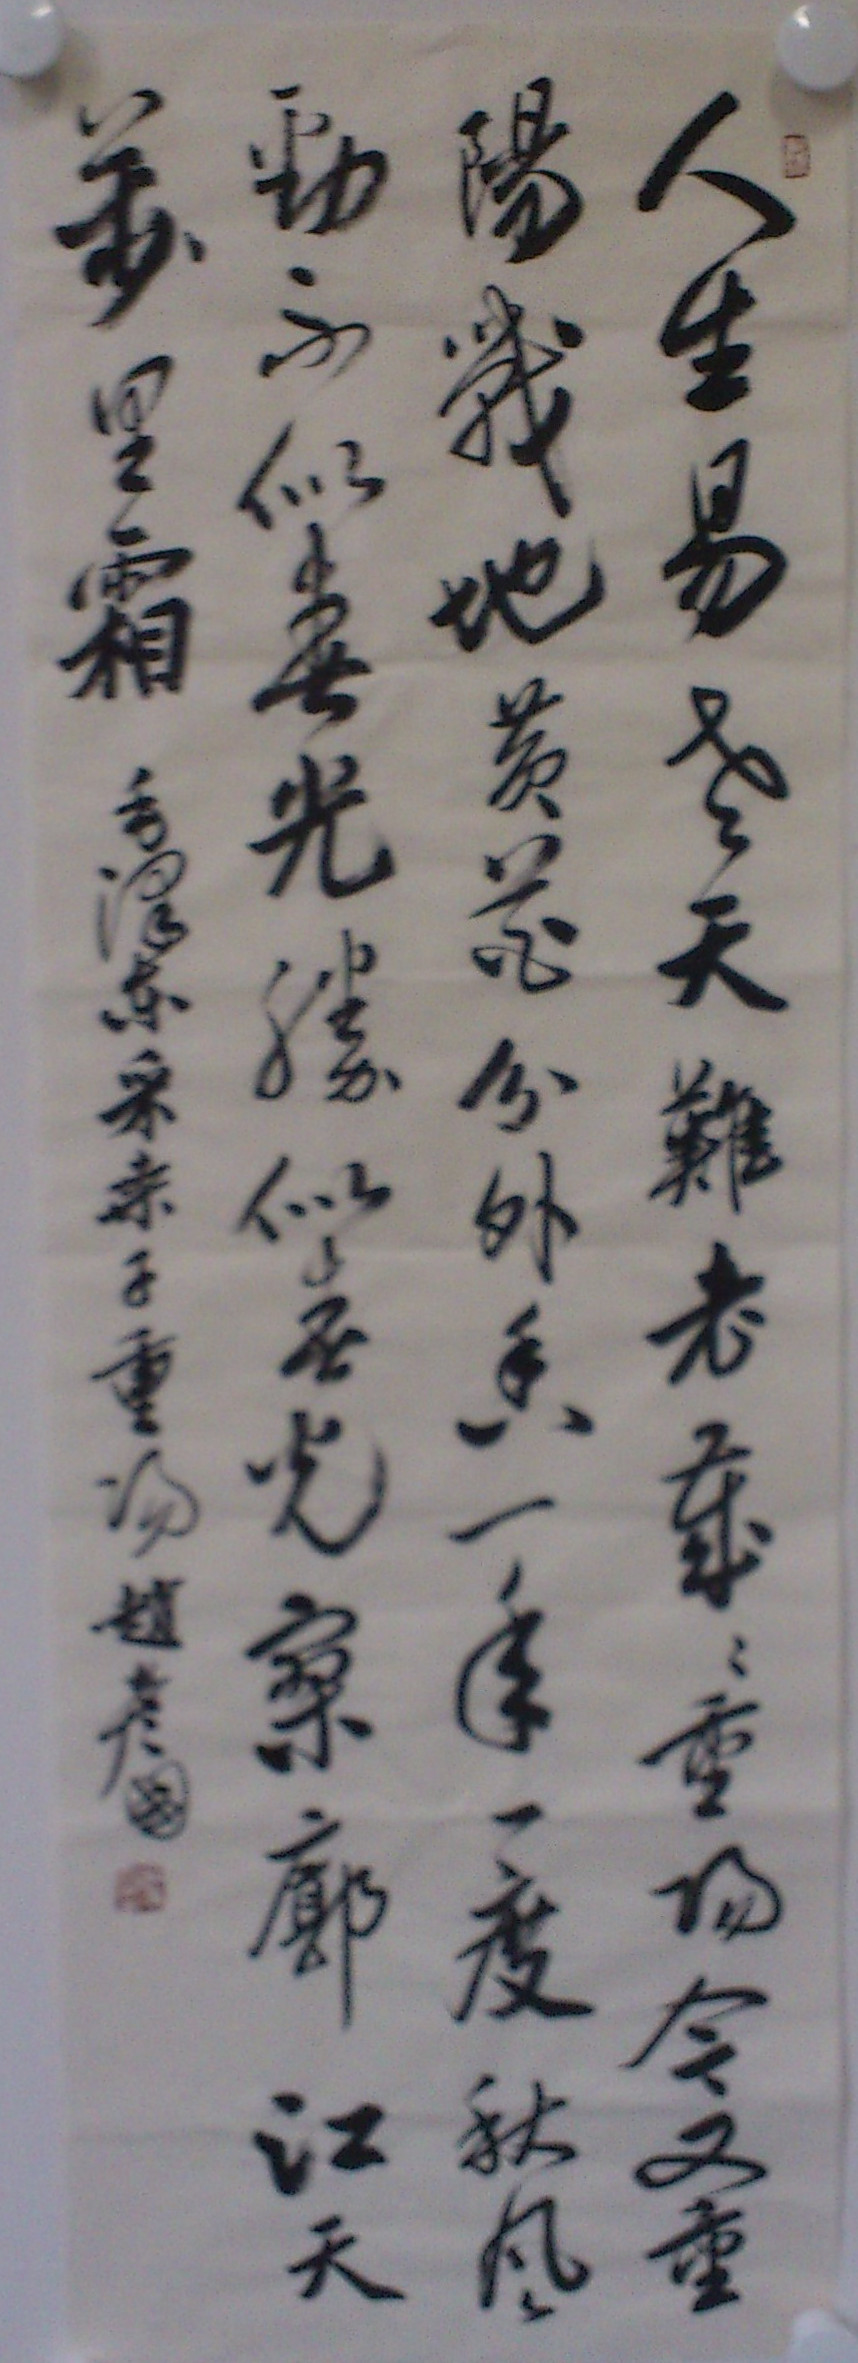 人生易老天難老歲〻重陽今又重
陽戰地黄花分外香一年一度秋風
勁不似春光勝似春光寥廓江天
萬里霜 毛澤東采桑子重陽趙彦國